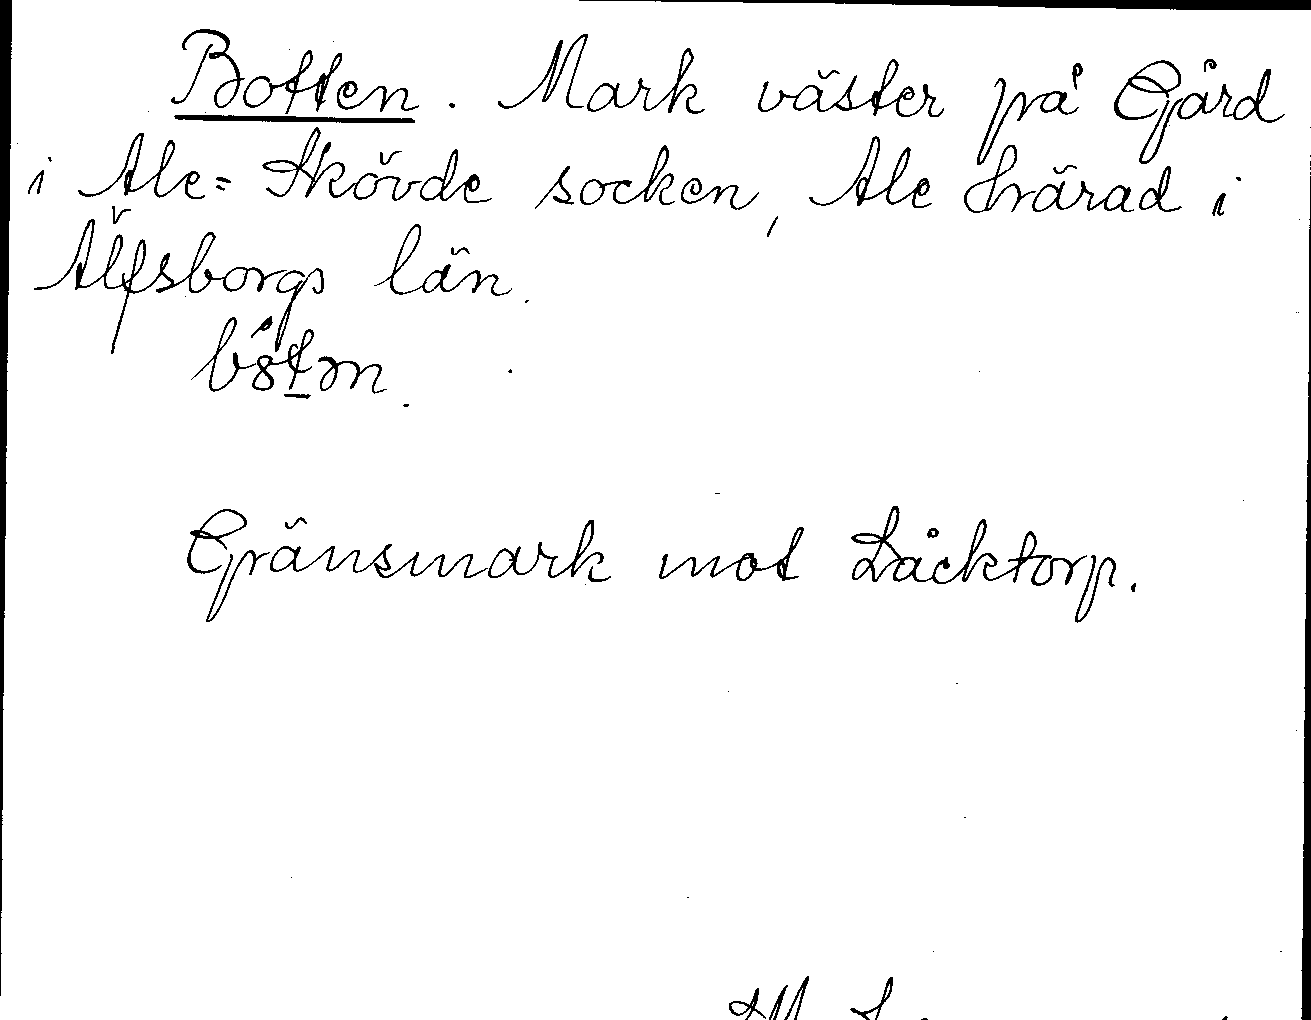 Botten. Mark väster på Gård
i Ale=Skövde socken, Ale härad i
Älfsborgs län.
Gränsmark mot Låcktorp.